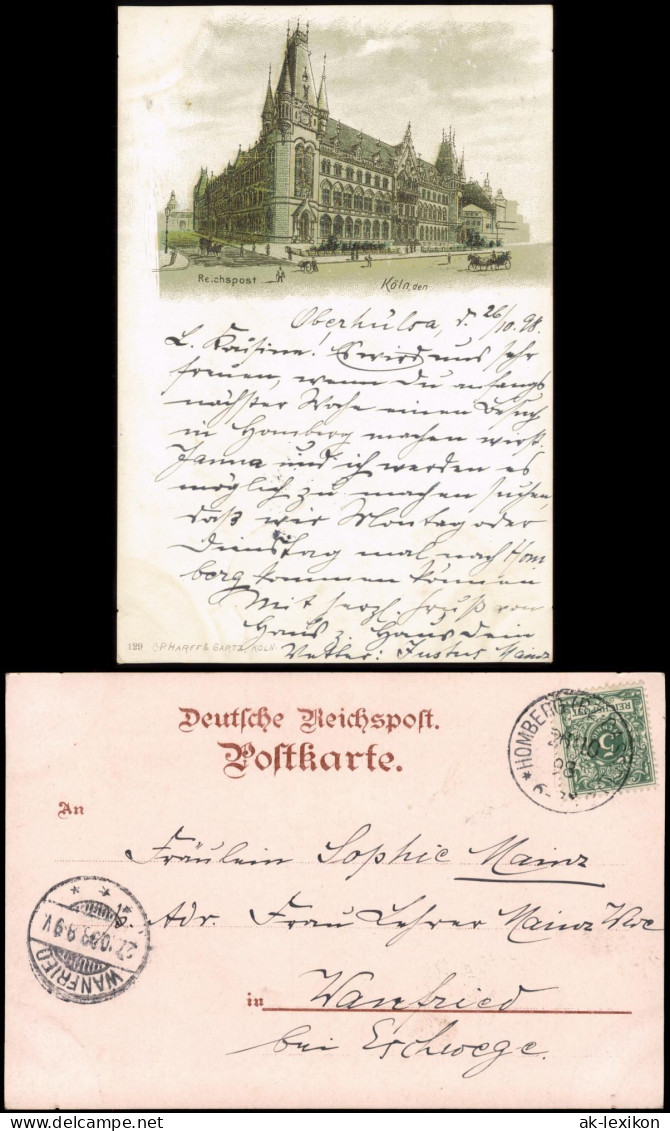 Reichspost
Köln, den
Oberhülsa, d. 26/10.98.
L. Kousine! Es wird uns sehr
freuen, wenn Du anfangs
nächster Woche einen Besuch
in Homberg machen wirst.
Janna und ich werden es
möglich zu machen suchen,
daß wir Montag oder
Dienstag mal nach Hom
berg kommen können
Mit herzl. Gruß von
Haus z. Haus Dein
Vetter: Justus Mainz
129 OP. HARFF & GARTZ, KÖLN.
Deutsche Reichspost.
Postkarte.
HOMBERG
5
An
Fräulein Sophie Mainz
p. Adr. Frau Lehrer Mainz Wwe
WANFRIED
27.10.98.8-9V.
in Wanfried
bei Eschwege.
ak-lexikon